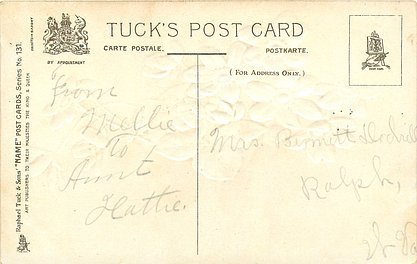 TUCK'S POST CARD
CARTE POSTALE.
POSTKARTE.
BY APPOINTMENT
(FOR ADDRESS ONLY.)
Raphael Tuck & Sons' "NAME" POST CARDS, Series No. 131.
ART PUBLISHERS TO THEIR MAJESTIES THE KING & QUEEN
From
Mellie
To
Aunt
Hattie.
Mrs. Bennett
Ralph,